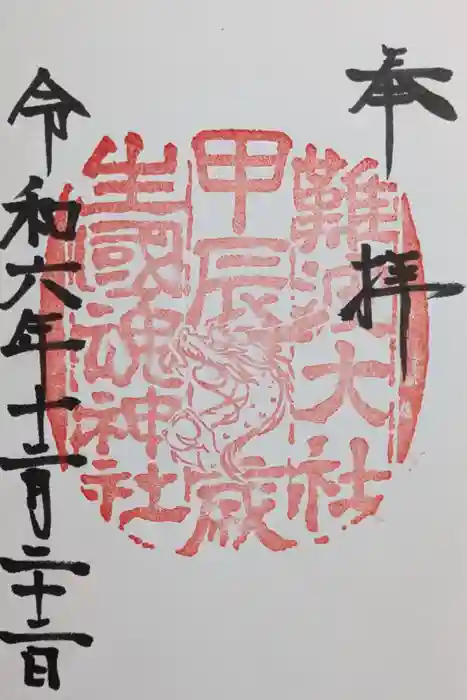 奉拝
難波大社
甲辰歳
生國魂神社
令和六年十二月二十二日